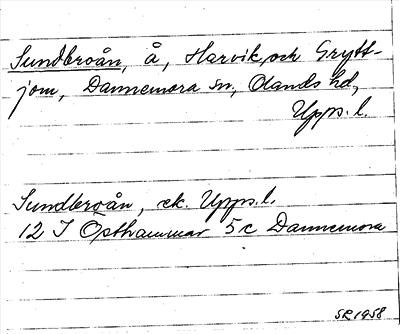 Sundbroån, å, Harvik, och Grytt-
jom, Dannemora sn, Olands hd,
Upps. l.
Sundbroån, ek. Upps. l.
12 I Östhammar 5c Dannemora
SR 1958